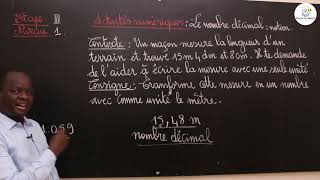 Etape III
Niveau 1
Activités numériques : Le nombre décimal : notion.
Contexte : Un maçon mesure la longueur d'un
terrain et trouve 15m 4dm et 8cm. Il te demande
de l'aider à écrire la mesure avec une seule unité
Consigne : Transforme cette mesure en un nombre
avec comme unité le mètre.
15,48 m
nombre décimal
1.059